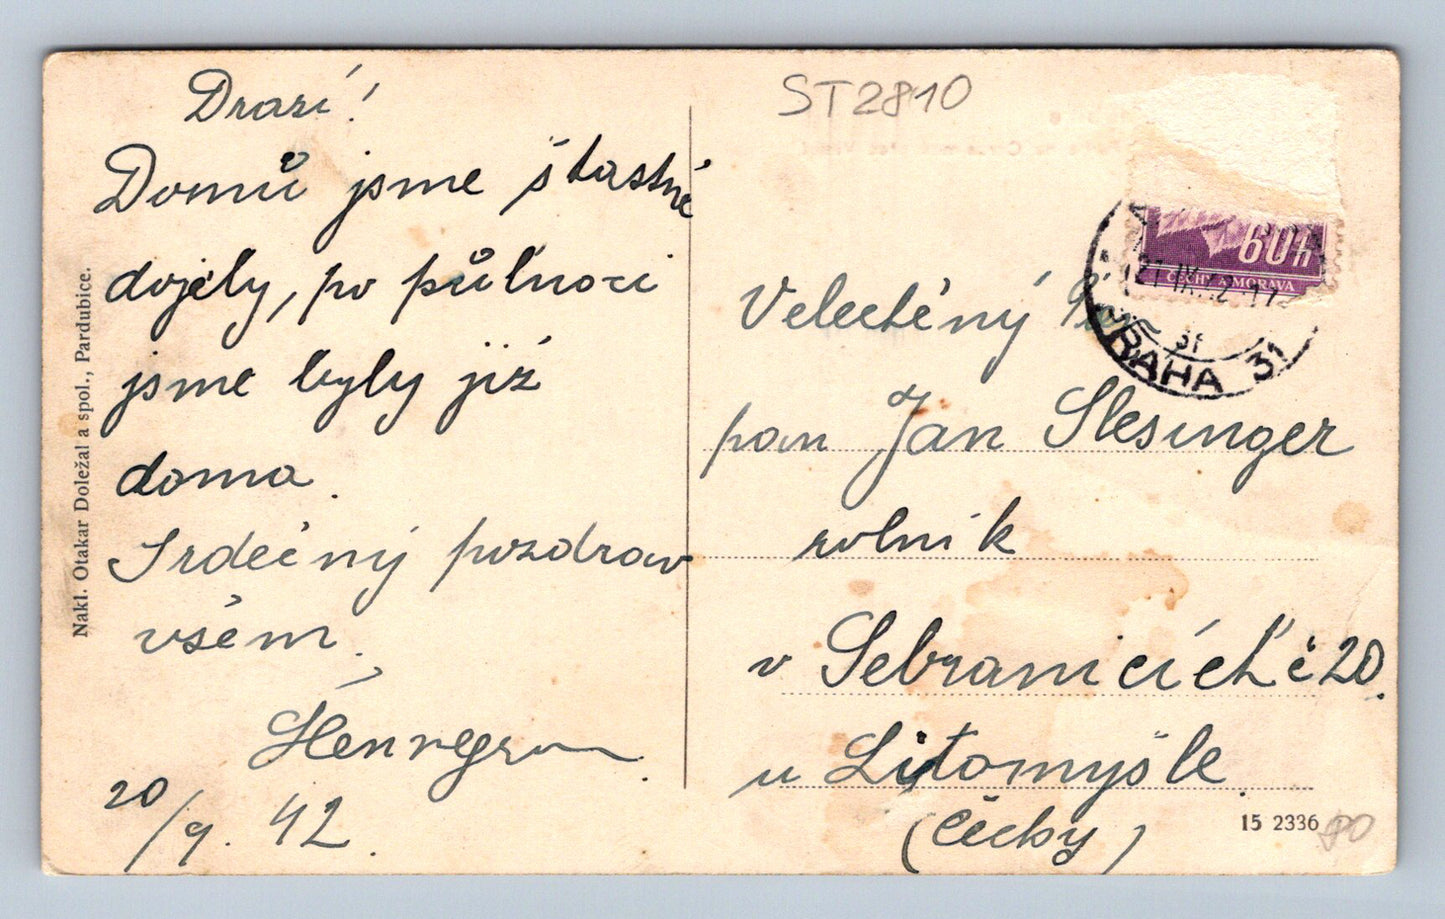 Drazí!
Domů jsme šťastně
dojely, po půlnoci
jsme byly již
doma.
Srdečný pozdrav
všem.
20/9. 42.
Nakl. Otakar Doležal a spol., Pardubice.
ST2810
60h
ČECHY A MORAVA
21 IX 42 17
31
PRAHA 31
Velectěný
pan Jan Slesinger
rolník
v Sebranicích č 20.
u Litomyšle.
(Čechy)
15 2336
80